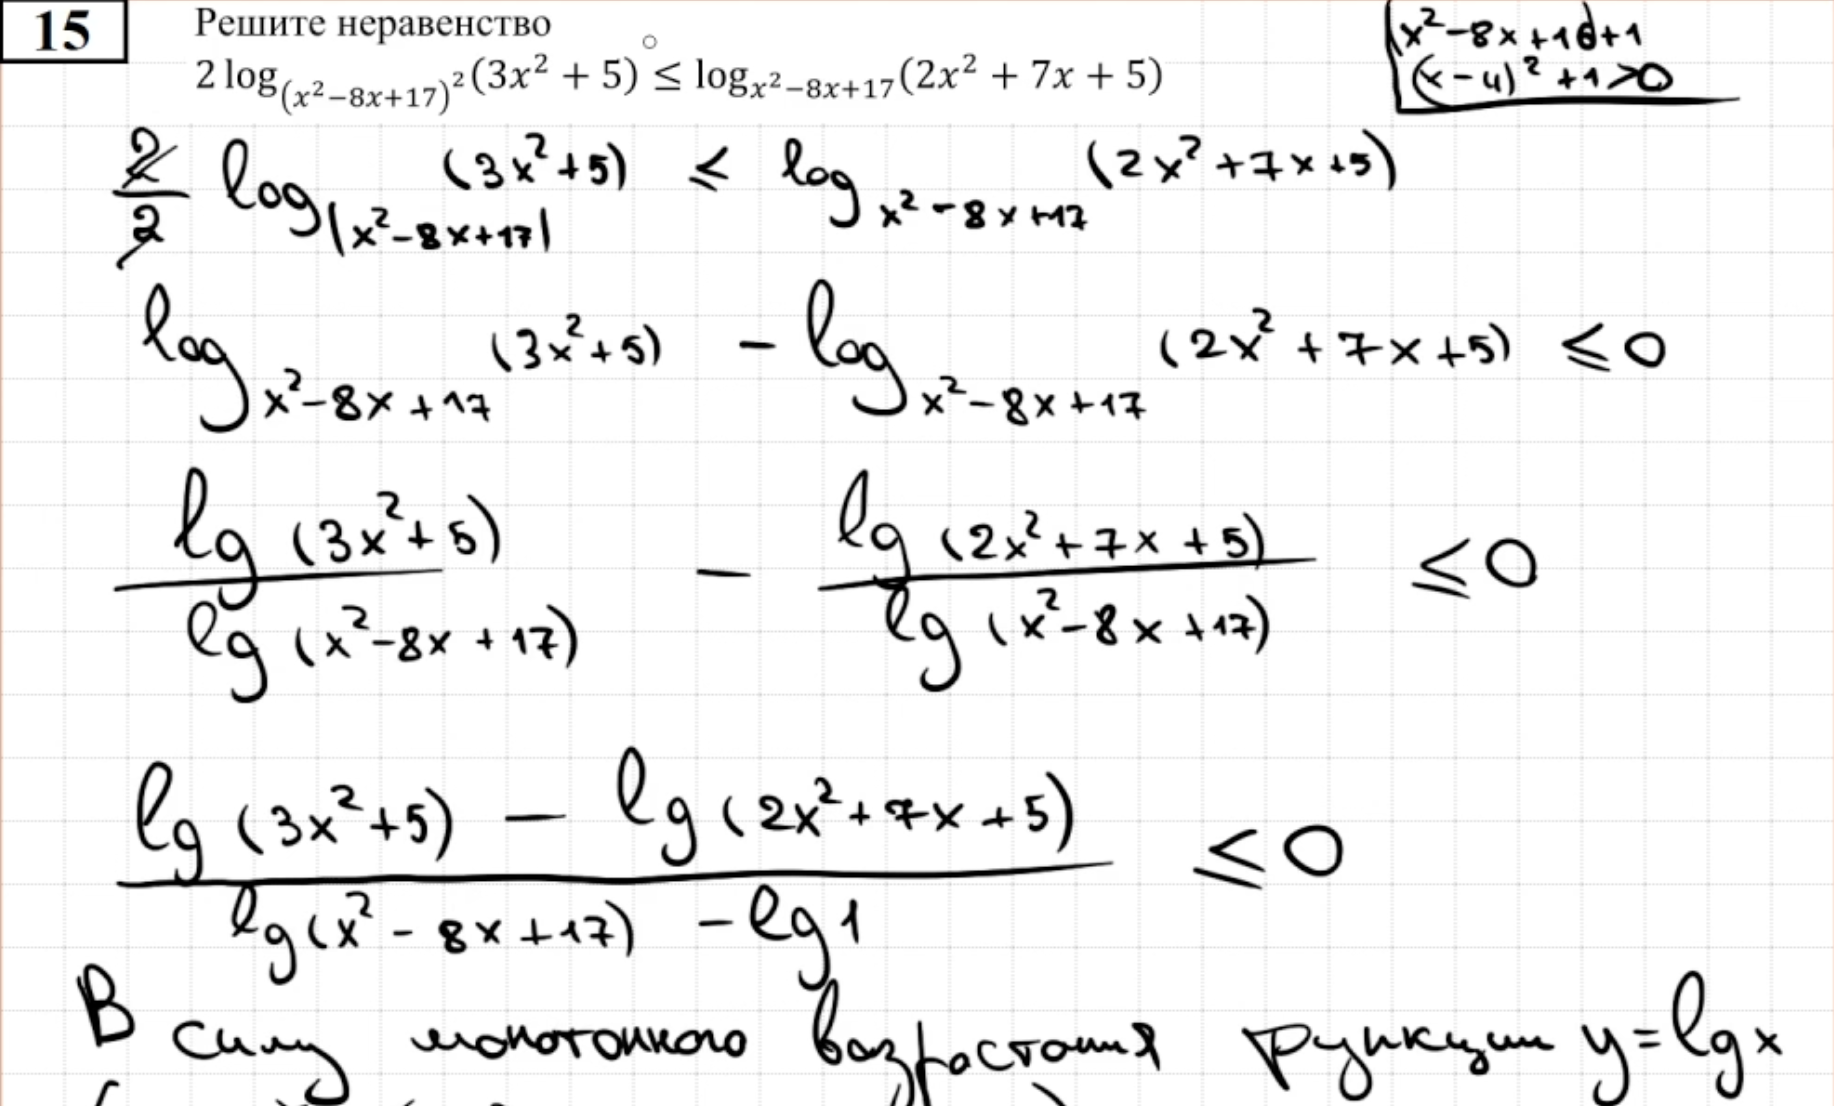 15
Решите неравенство
2 log_{(x²−8x+17)²}(3x² + 5) ≤ log_{x²−8x+17}(2x² + 7x + 5)
(x²-8x+16)+1
(x-4)²+1>0
2/2 log_{|x²-8x+17|} (3x²+5) ≤ log_{x²-8x+17} (2x²+7x+5)
log_{x²-8x+17} (3x²+5) - log_{x²-8x+17} (2x²+7x+5) ≤0
lg (3x²+5) / lg (x²-8x+17) - lg (2x²+7x+5) / lg (x²-8x+17) ≤0
lg (3x²+5) - lg (2x²+7x+5) / lg(x²-8x+17) -lg1 ≤0
В силу монотонного возрастания функции y=lgx